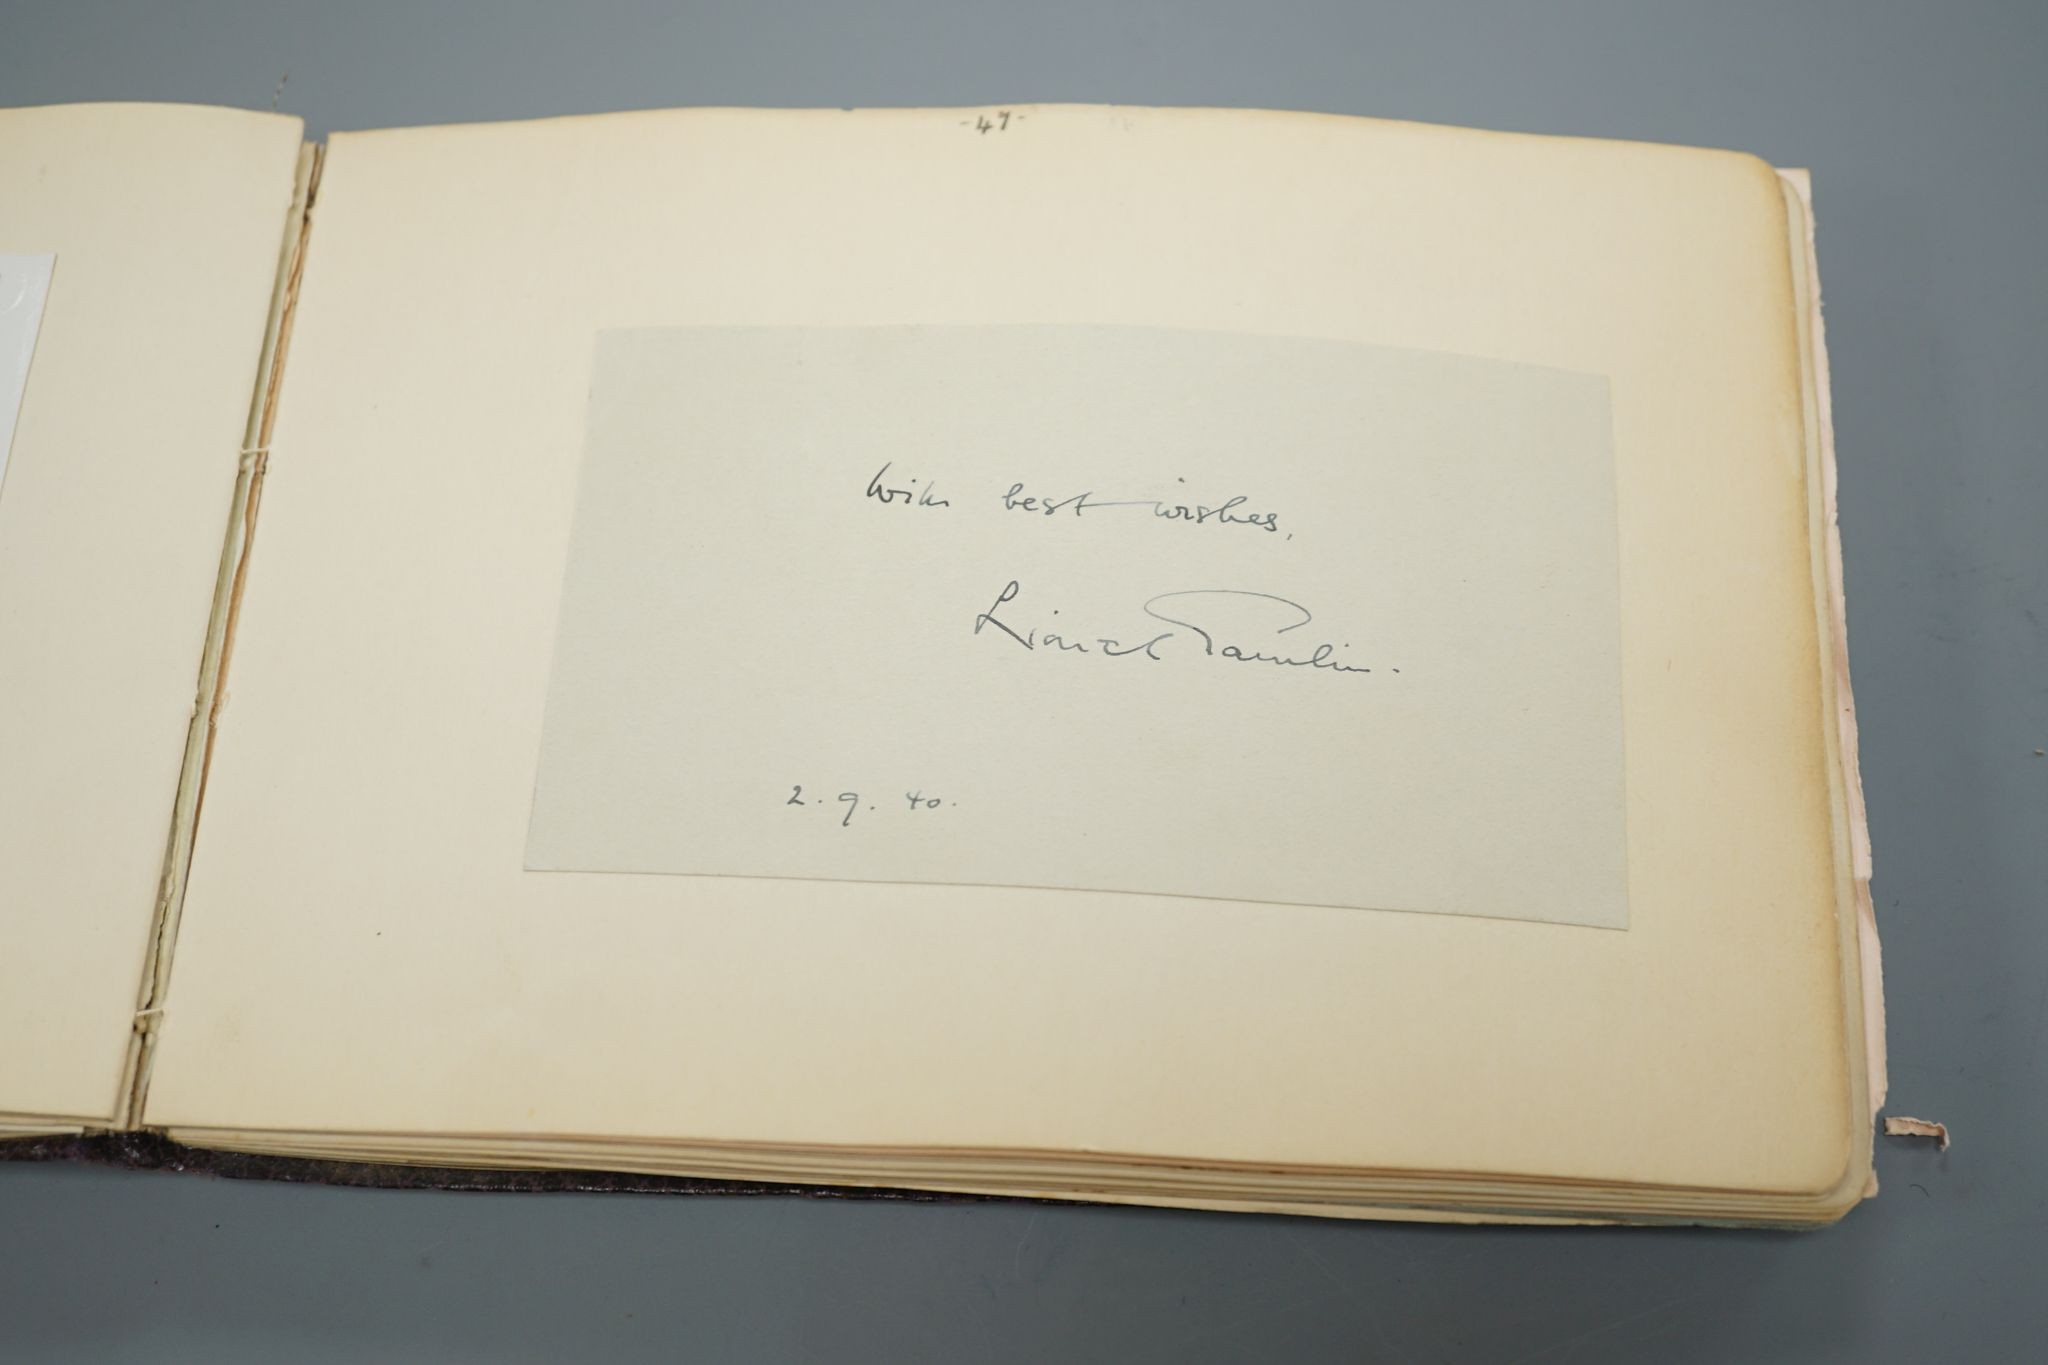 -47-
With best wishes,
Lionel Tamlin.
2.9.40.